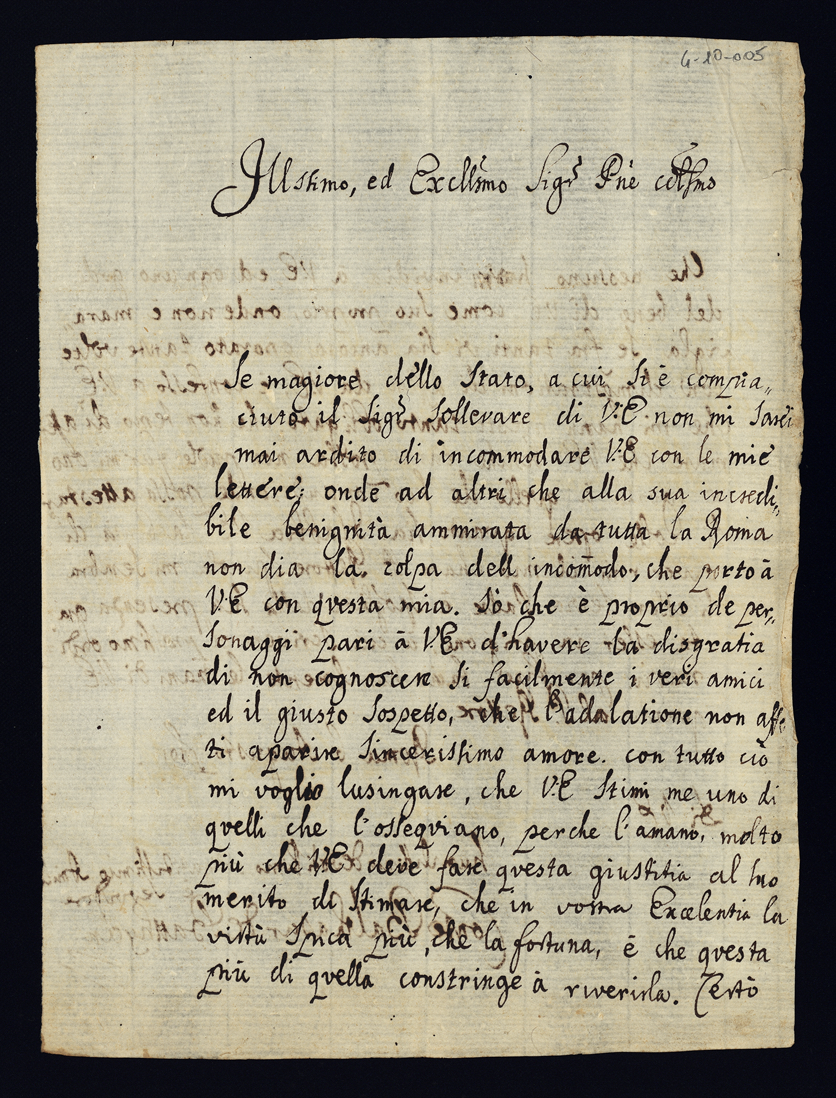 4-10-005
Illstimo, ed Excllmo Sigr Pne
Se magiore dello Stato, a cui si è compia,,
ciuto il Sigr sollevare di V:E non mi sarei
mai ardito di incommodare V:E con le mie
lettere; onde ad altri che alla sua incredi,,
bile benignità ammirata da tutta la Roma
non dia la colpa dell incom̃odo, che porto à
V:E con questa mia. Sò che è proprio de per,,
sonaggi pari à V:E d'havere la disgratia
di non cognoscere si facilmente i veri amici
ed il giusto sospetto, che l'adalatione non affe,,
ti aparire sincerissimo amore. con tutto ciò
mi voglio lusingare, che V:E stimi me uno di
quelli che l'ossequiano, perche l'amano, molto
più che V:E deve fare questa giustitia al suo
merito di stimare, che in vostra Excelentia la
virtù spica più, che la fortuna, è che questa
più di quella constringe à riverirla. Certò